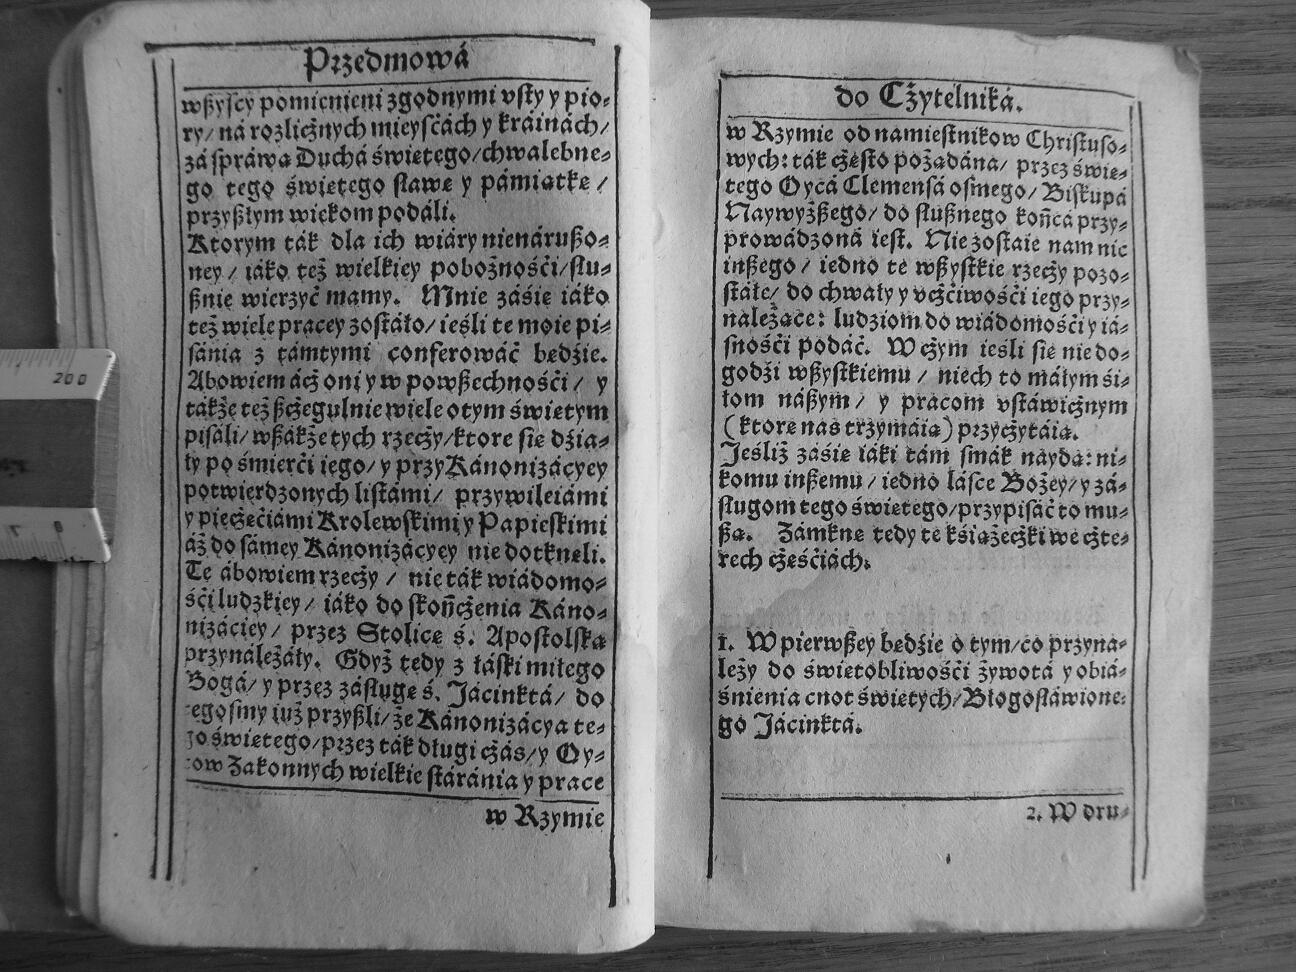 Przedmowá
wßyscy pomienieni zgodnymi vsty y pio⸗
ry/ ná rozlicżnych mieyscách y kráinách/
zá spráwą Duchá świętego/chwalebne⸗
go tego świętego sławę y pámiątkę /
przyßłym wiekom podáli.
Ktorym ták dla ich wiáry nienárußo⸗
ney / iáko też wielkiey pobożnośći/słu⸗
ßnie wierzyć mamy. Mnie záśię iáko
też wiele pracey zostáło/ ieśli te moie pi⸗
sánia z támtymi conferowáć będźie.
Abowiem ácż oni y w powßechnośći / y
tákże też ßcżegulnie wiele o tym świętym
pisáli/ wßákże tych rzecży/ktore się dźia⸗
ły po śmierći iego/ y przy Kánonizácyey
potwierdzonych listámi/ przywileiámi
y piecżęćiámi Krolewskimi y Papieskimi
áż do sámey Kánonizácyey nie dotknęli.
Te ábowiem rzecży / nie ták wiádomo⸗
śći ludzkiey / iáko do skońcżenia Káno⸗
nizáciey / przez Stolicę ś. Apostolską
przynależáły. Gdyż tedy z łáski miłego
Bogá/ y przez zásługę ś. Jácinktá/ do
tegosmy iuż przyßli/ że Kánonizácya te⸗
go świętego/przez ták długi cżás/y Oy⸗
cow Zakonnych wielkie stáránia y prace
w Rzymie
do Cżytelniká.
w Rzymie od namiestnikow Christuso⸗
wych: ták cżęsto pożądána/ przez świę⸗
tego Oycá Clemensá osmego/ Biskupá
Naywyżßego/ do słußnego końcá przy⸗
prowádzoná iest. Nie zostáie nam nic
inßego / iedno te wßystkie rzecży pozo⸗
stáłe/ do chwały y vcżćiwośći iego przy⸗
należące: ludziom do wiádomośći y iá⸗
snośći podáć. W cżym ieśli się nie do⸗
godźi wßystkiemu / niech to máłym śi⸗
łom náßym/ y pracom vstáwicżnym
(ktore nas trzymáią) przycżytáią.
Jeśliż záśię iáki tám smák náydą: ni⸗
komu inßemu / iedno łásce Bożey/ y zá⸗
sługom tego świętego/przypisáć to mu⸗
ßą. Zámknę tedy te kśiążecżki we cżte⸗
rech cżęśćiách.
1. W pierwßey będźie o tym/co przyna⸗
leży do świętobliwośći żywotá y obiá⸗
śnienia cnot świętych/Błogosłáwione⸗
go Jácinktá.
2. W dru⸗